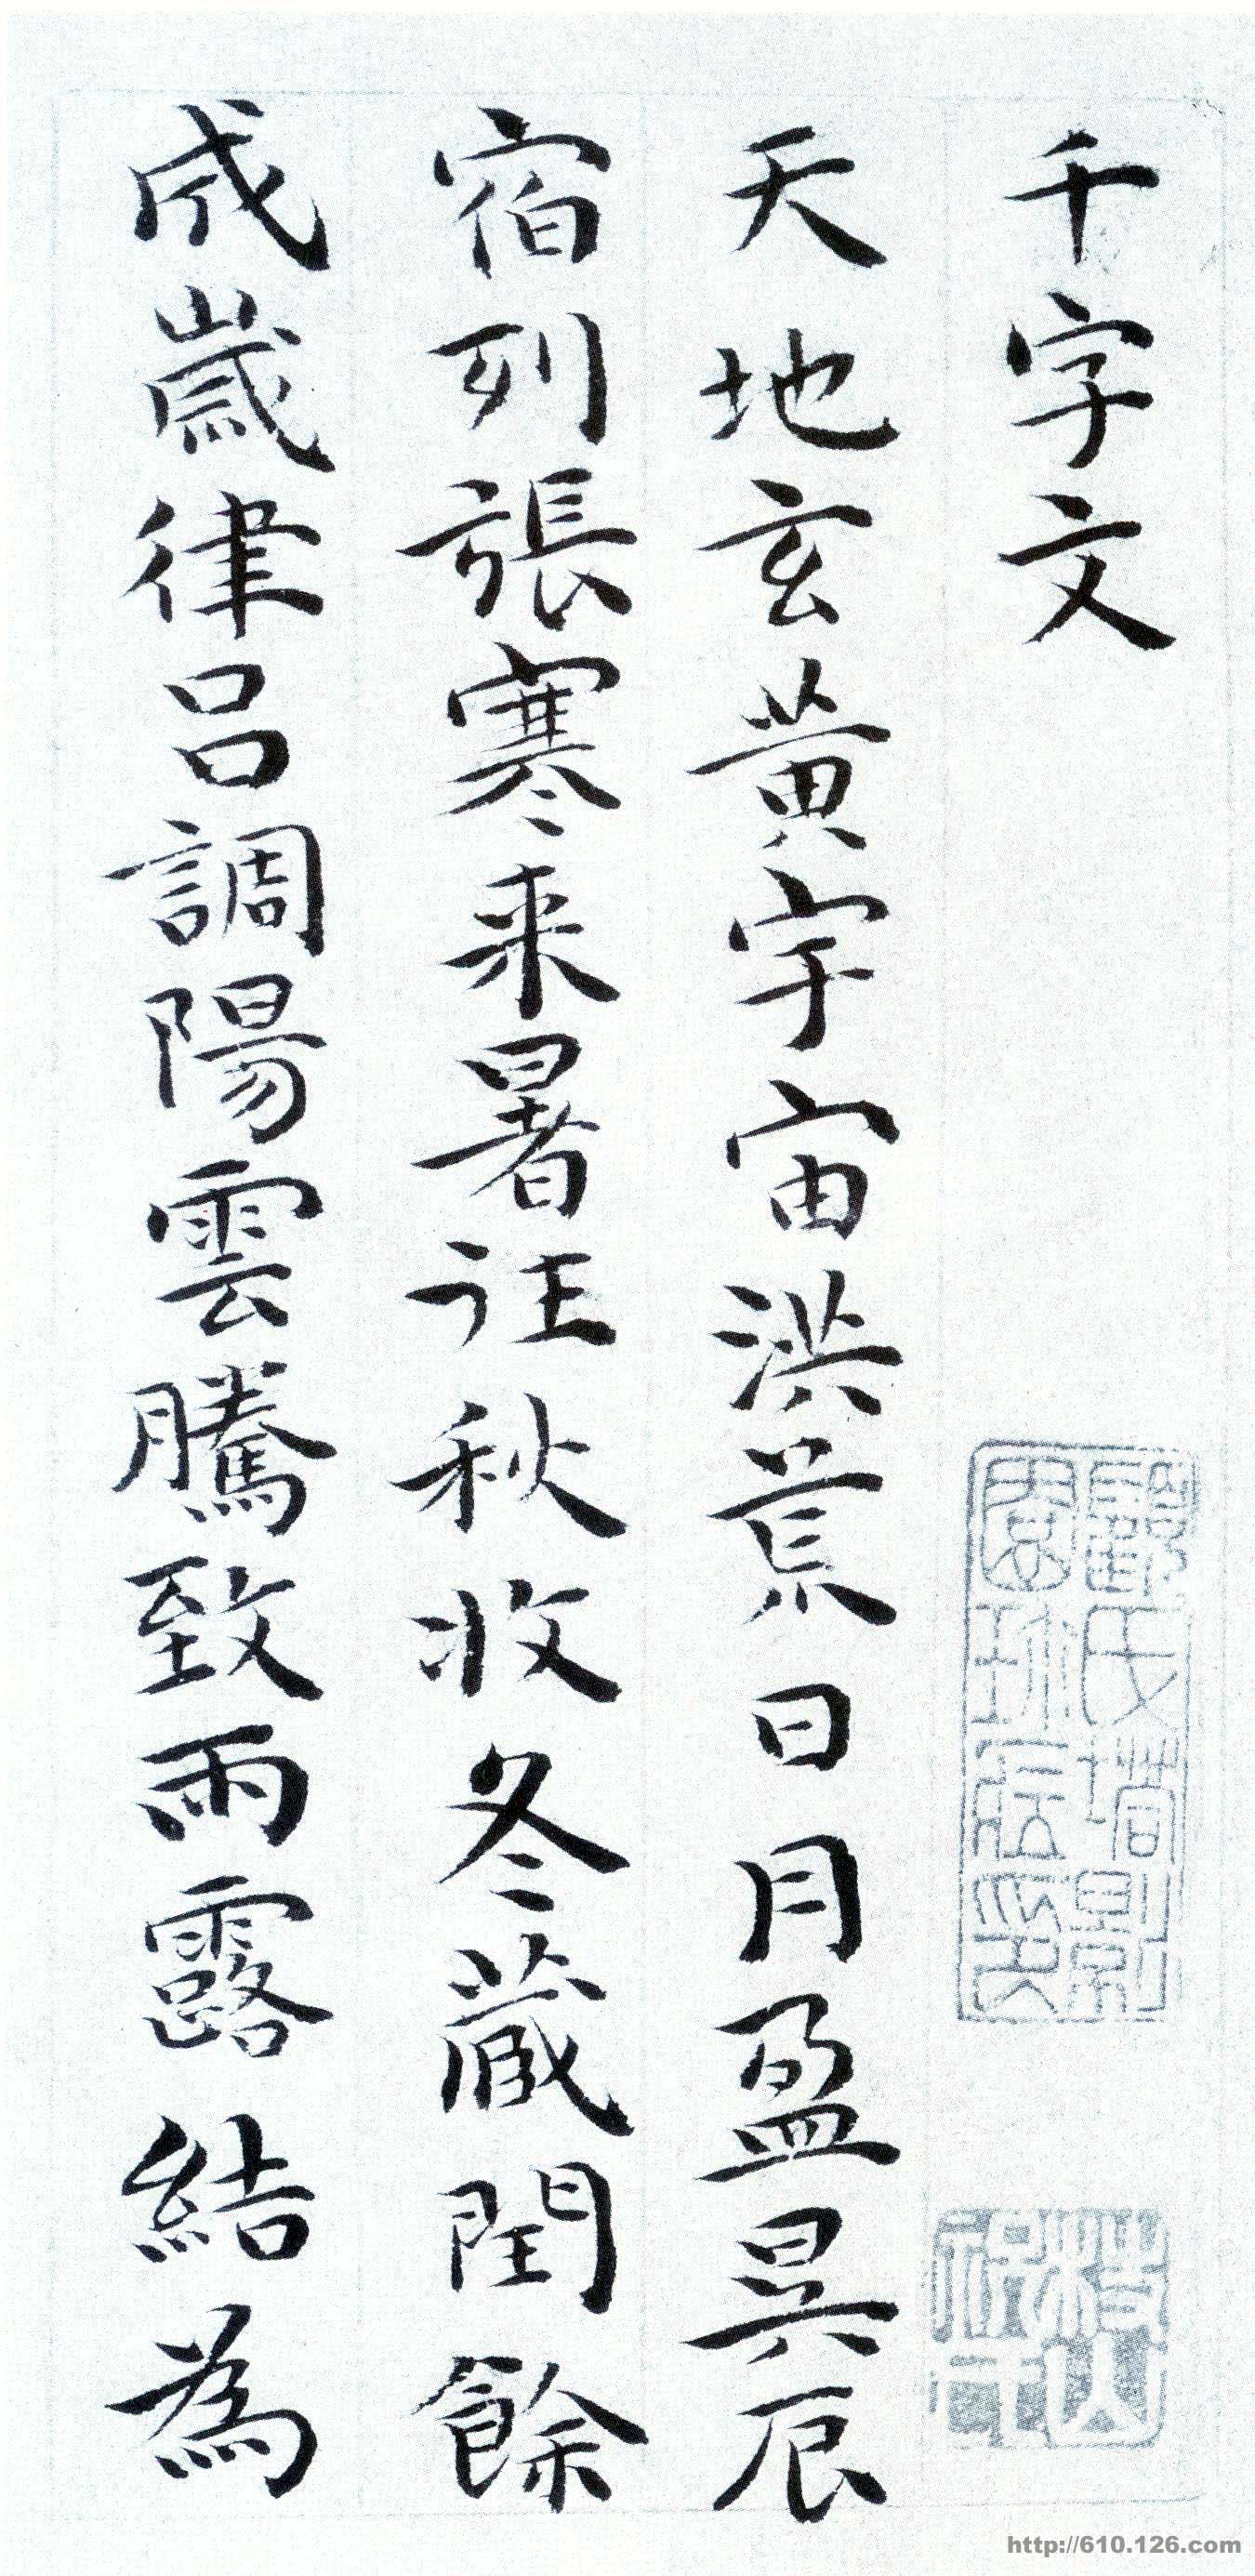 千字文
天地玄黄宇宙洪荒日月盈昃辰
宿列張寒来暑往秋收冬藏閏餘
成歲律呂調陽雲騰致雨露結為
http://610.126.com